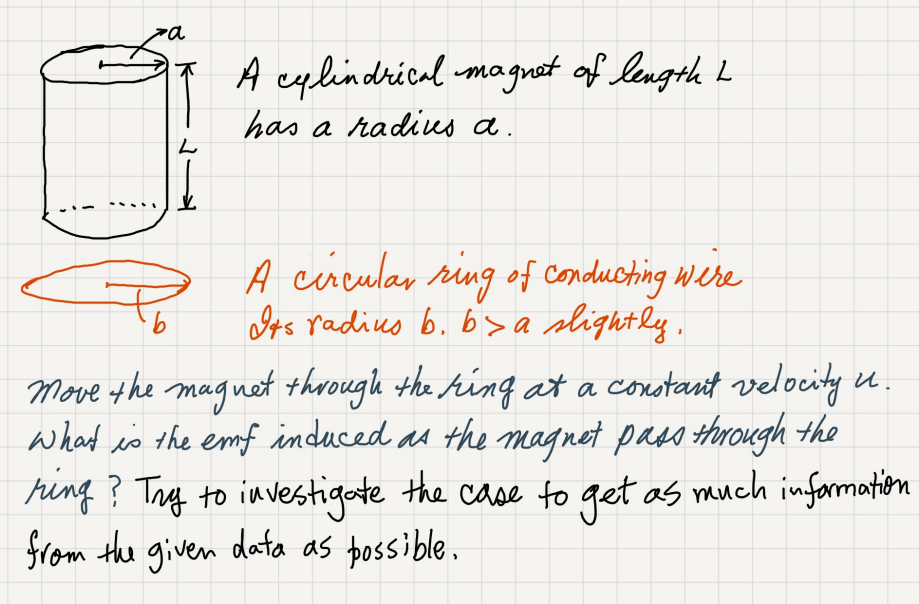 a
A cylindrical magnet of length L
has a radius a.
L
A circular ring of conducting wire
Its radius b. b > a slightly.
b
Move the magnet through the ring at a constant velocity u.
What is the emf induced as the magnet pass through the
ring? Try to investigate the case to get as much information
from the given data as possible.